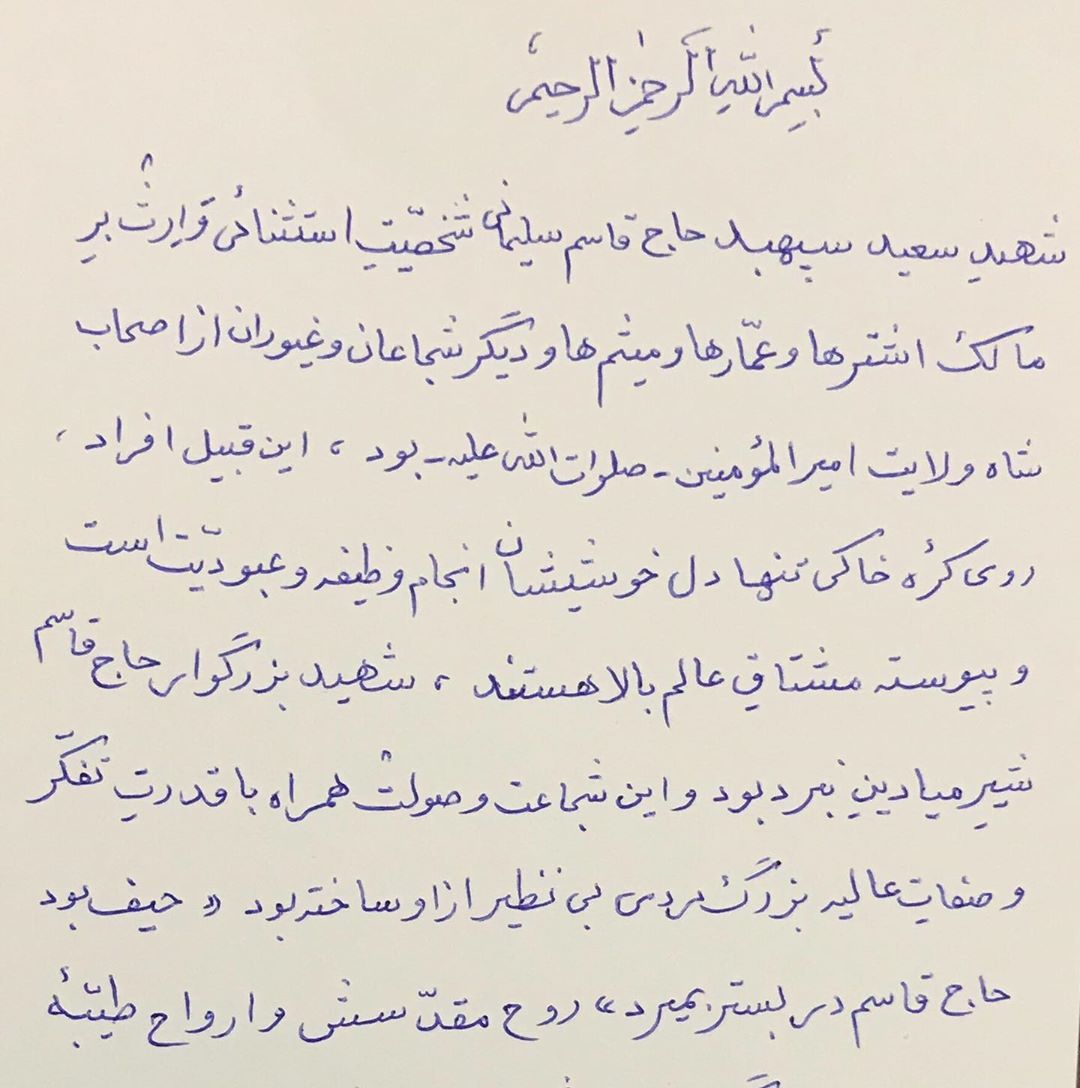 بسم الله الرحمن الرحیم
شهید سعید سپهبد حاج قاسم سلیمانی شخصیّتِ استثنائی و وارث بر
مالک اشترها و عمّارها و میثم‌ها و دیگر شجاعان و غیوران از اصحاب
شاه ولایت امیرالمؤمنین - صلوات الله علیه - بود ، این قبیل افراد ،
روی کرهٔ خاکی تنها دل خوشیشان انجام وظیفه و عبودیّت است
و پیوسته مشتاقِ عالم بالا هستند ، شهید بزرگوار حاج قاسم
شیر میادینِ نبرد بود و این شجاعت و صولتش همراه با قدرتِ تفکّر
و صفات عالیه بزرگ مردی بی نظیر از او ساخته بود « حیف بود
حاج قاسم در بستر بمیرد » روح مقدّسش و ارواح طیّبهٔ